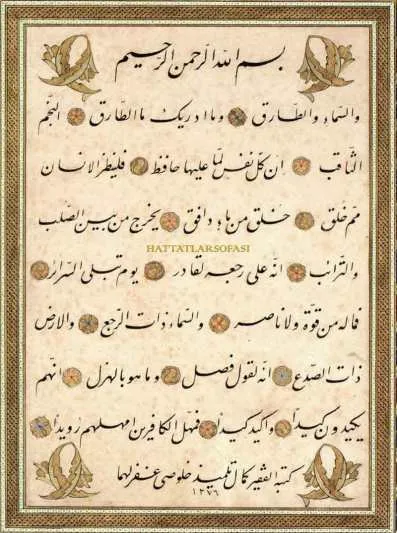 بسم الله الرحمن الرحيم
والسماء والطارق وما ادريك ما الطارق النجم
الثاقب ان كل نفس لما عليها حافظ فلينظر الانسان
مم خلق خلق من ماء دافق يخرج من بين الصلب
HATTATLARSOFASI
والترائب انه على رجعه لقادر يوم تبلى السرائر
فما له من قوة ولا ناصر والسماء ذات الرجع والارض
ذات الصدع انه لقول فصل وما هو بالهزل انهم
يكيدون كيداً واكيد كيداً فمهل الكافرين امهلهم رويداً
كتبه الفقير كمال تلميذ خلوصى غفر لهما
١٢٧٦